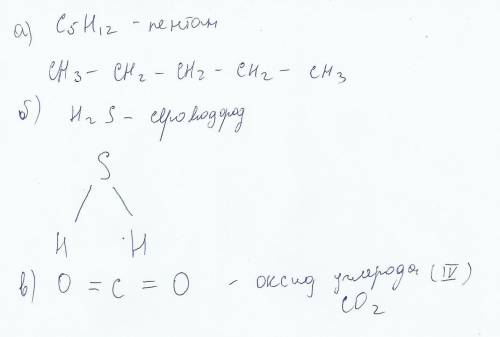 а) C5H12 - пентан
CH3 - CH2 - CH2 - CH2 - CH3
б) H2S - сероводород
S
H H
в) O = C = O - оксид углерода (IV)
CO2